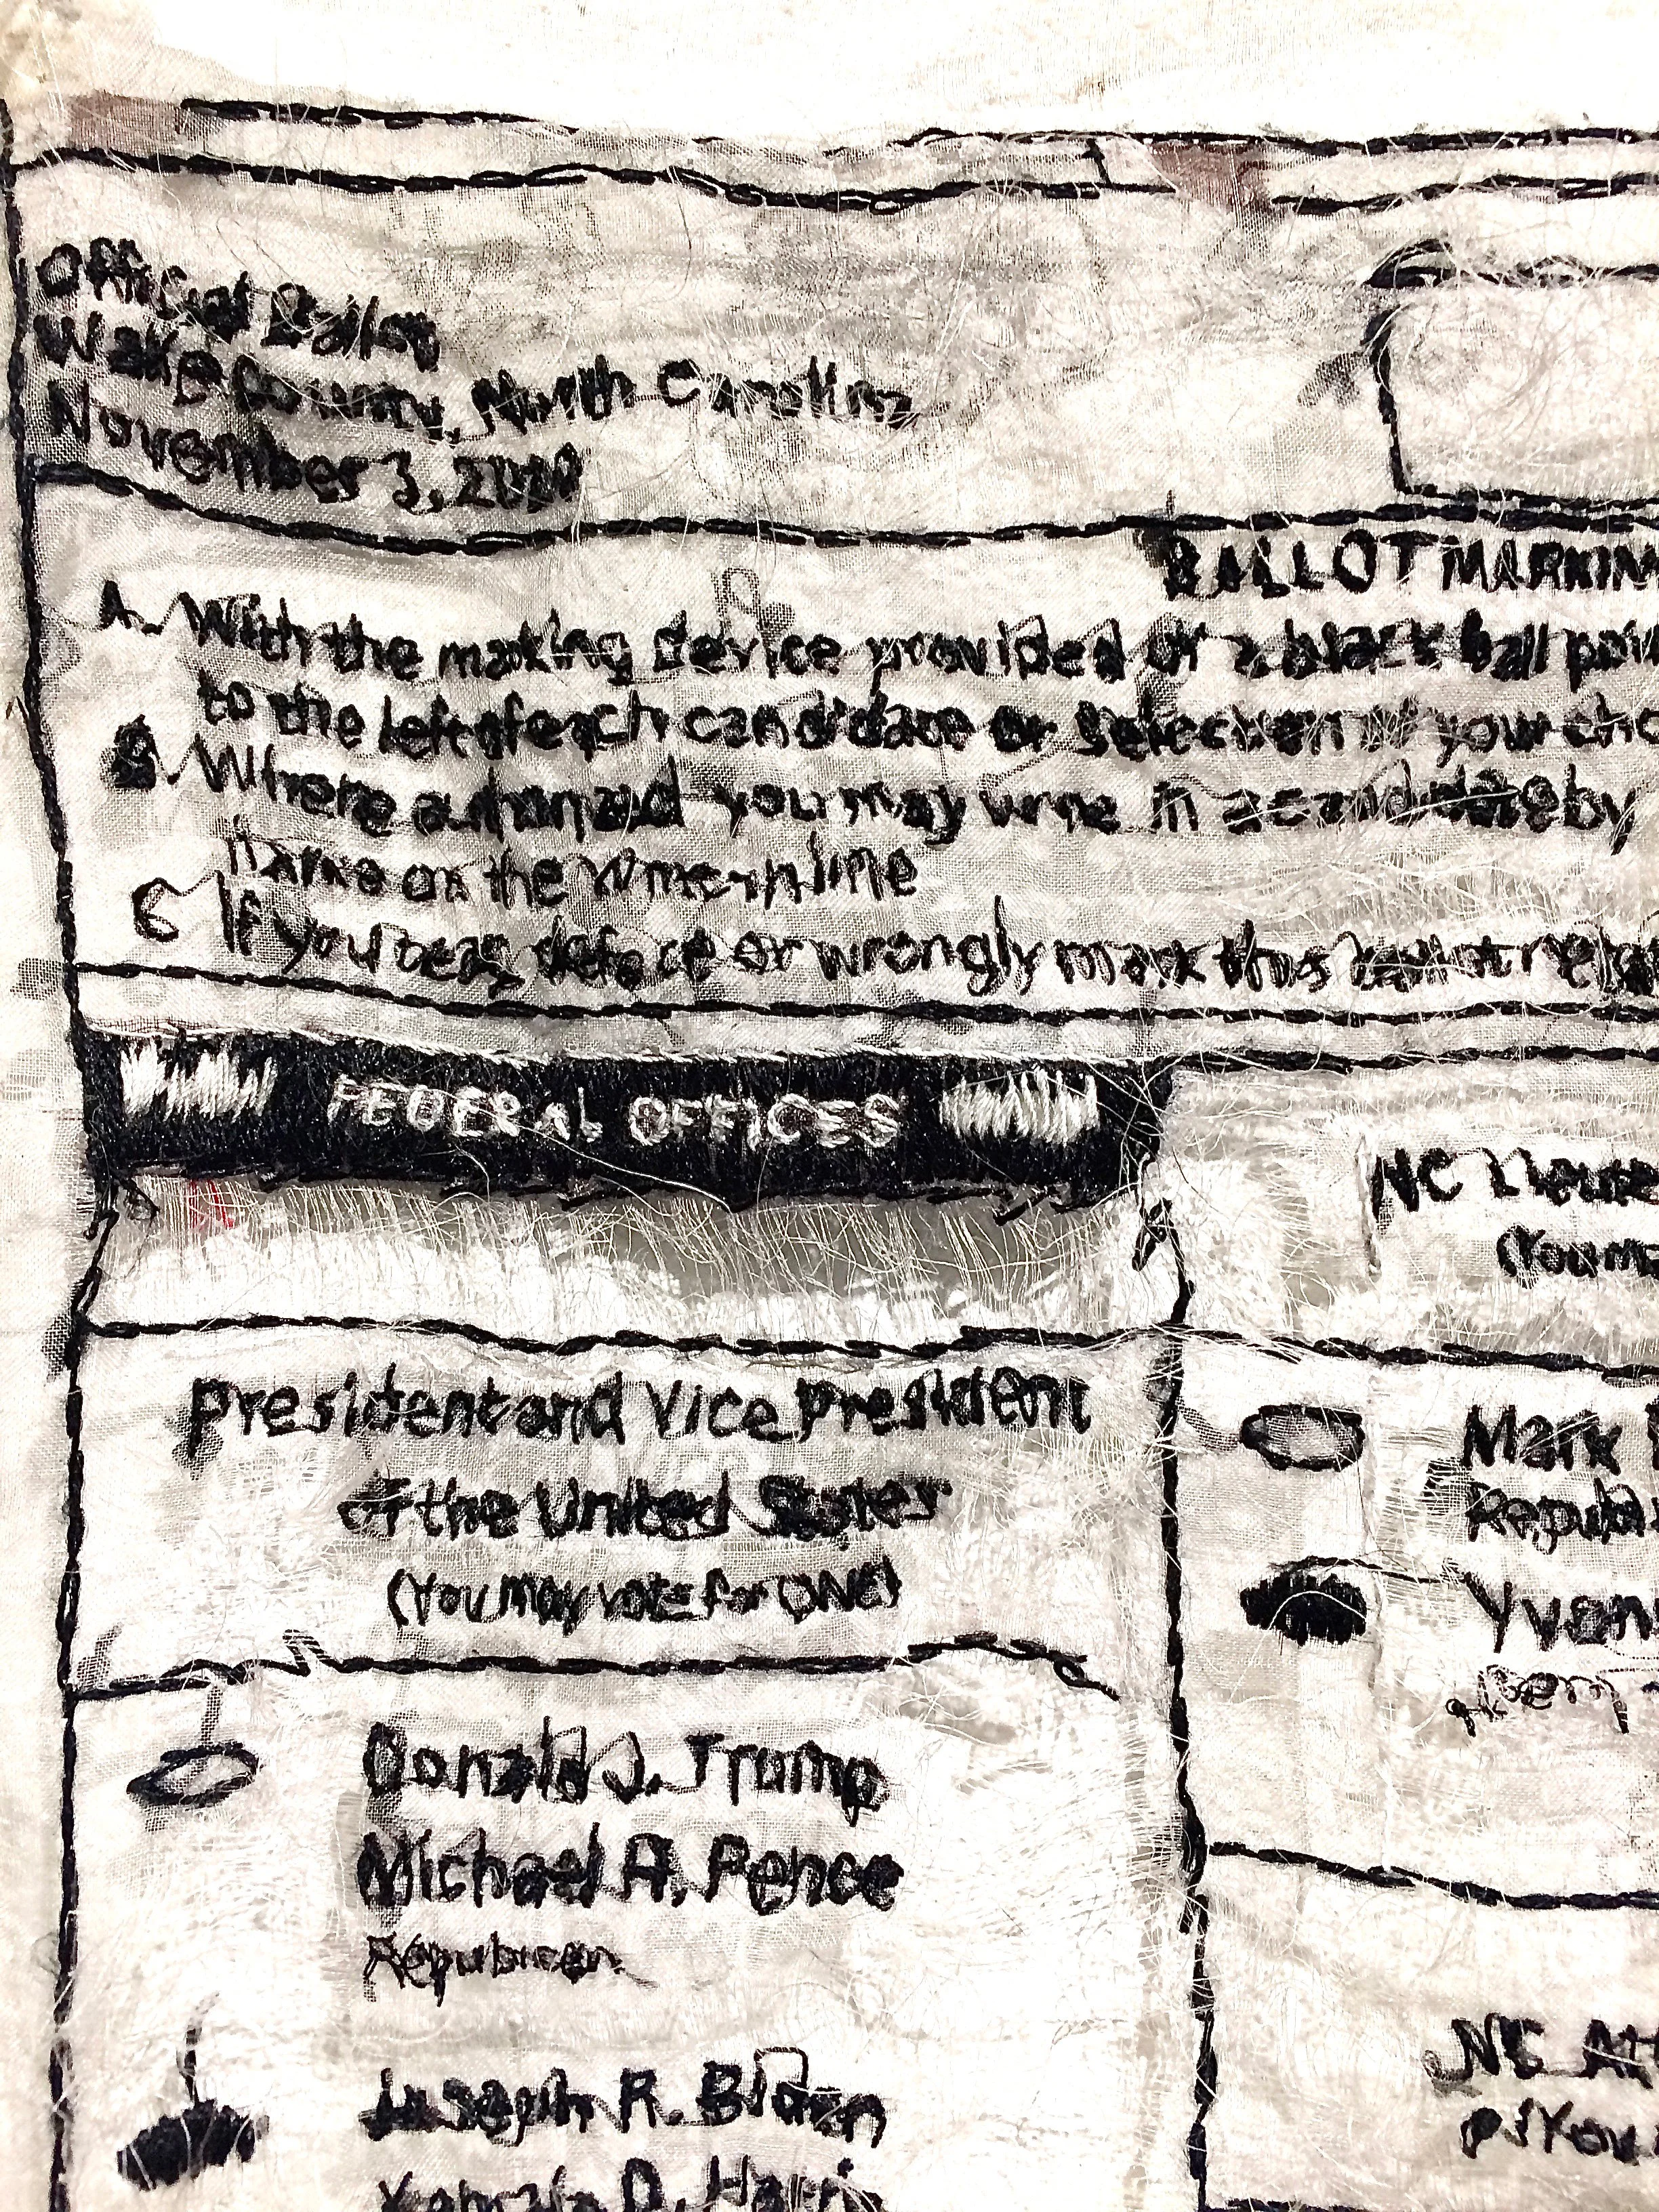 Official Ballot
Wake County, North Carolina
November 3, 2020
BALLOT MARKIN
A. With the making device provided or a black ball poi
to the left of each candidate or selection of your cho
B. Where authorized you may write in a candidate by
name on the write-in line
C If you tear, deface or wrongly mark this ballot re
FEDERAL OFFICES
President and Vice President
of the United States
(You may vote for ONE)
Donald J. Trump
Michael A. Pence
Republican
Joseph R. Biden
Kamala D. Harris
NC House
(You m
Mark
Republi
Yvon
NC Att